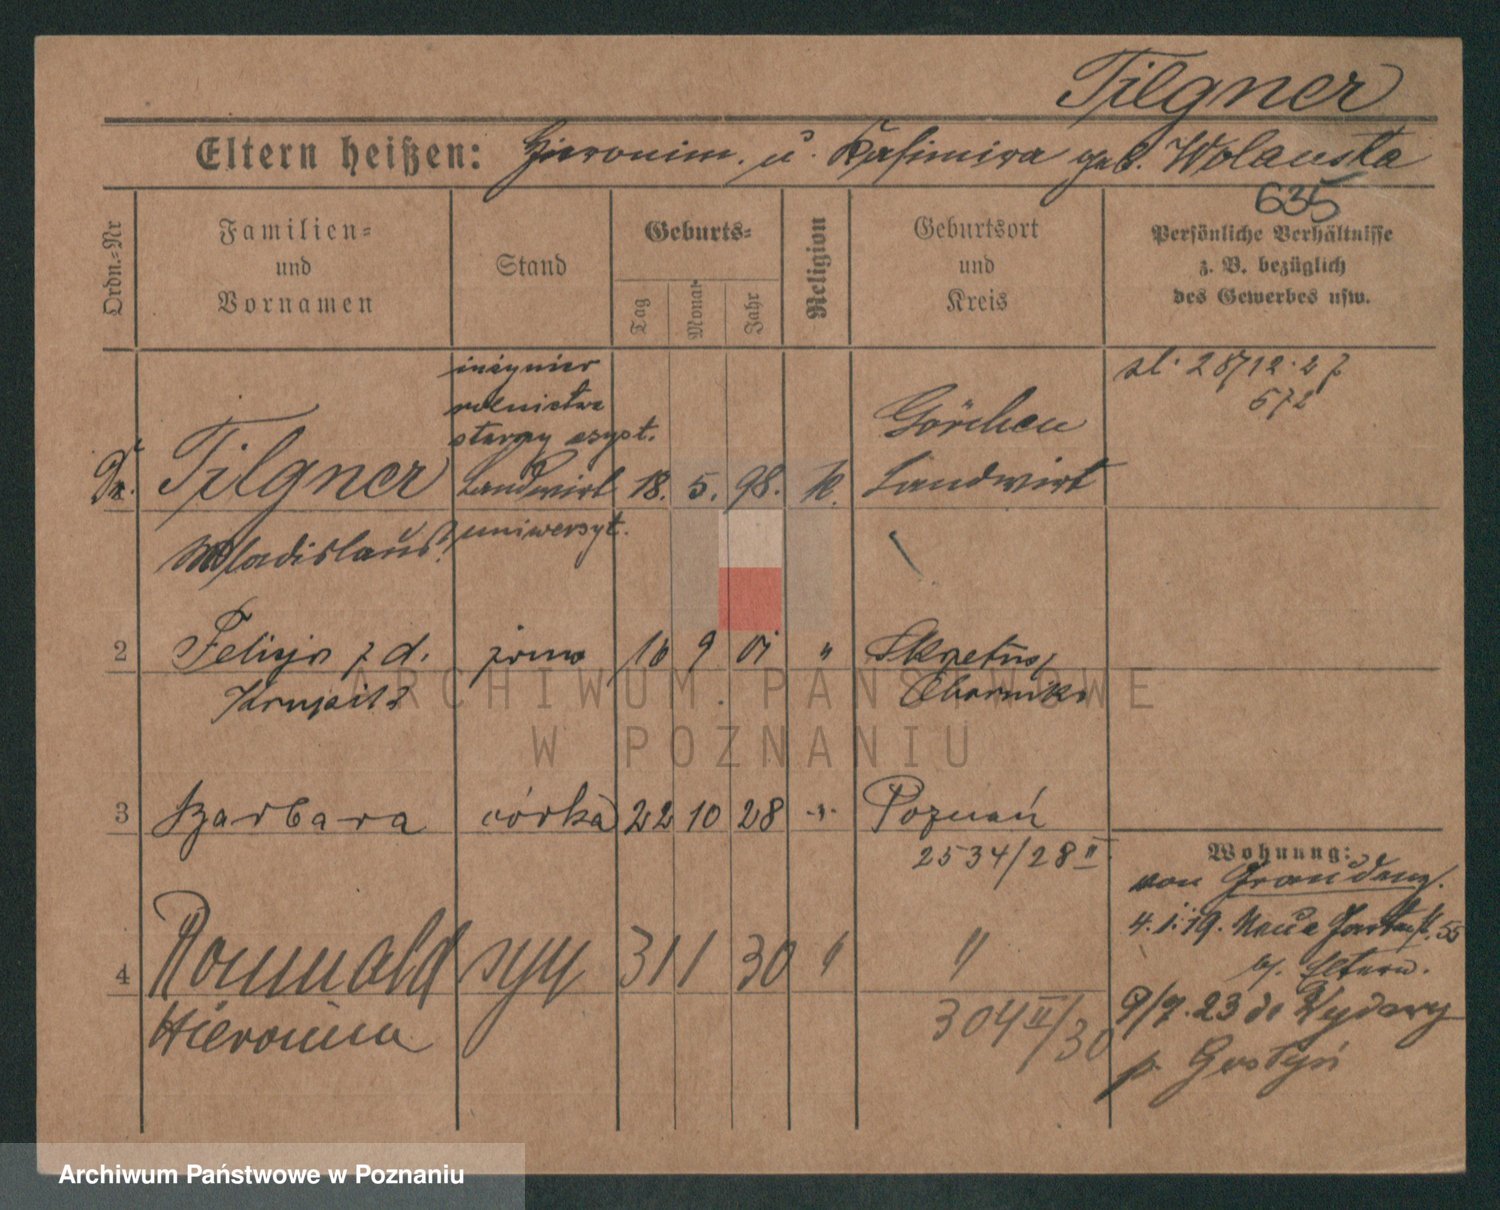 Tilgner
Eltern heißen: Hieronim. u. Kasimira geb. Wolanska
635
Ordn.-Nr
Familien- und Vornamen
Stand
Geburts-
Tag
Monat
Jahr
Religion
Geburtsort und Kreis
Persönliche Verhältnisse z. B. bezüglich des Gewerbes usw.
inżynier
rolnictwa
starszy asyst.
uniwersyt.
Dr. Tilgner Landwirt 18. 5. 98. k.
Görchen
Landwirt
Wladislaus
2 Felicja z d. żona 16 9 01 "
Krupitz
Obornik
3 Barbara córka 22 10 28 -"-
Poznań
2534/28 II
4 Romuald syn 31 1 30 " "
Hieronim
304 II/30
Wohnung:
von Graudenz.
4.1.19. Neue Gartenst. 55
b/. Eltern.
9/7.23 do Wydawy
p. Gostyń
ARCHIWUM PAŃSTWOWE
W POZNANIU
Archiwum Państwowe w Poznaniu